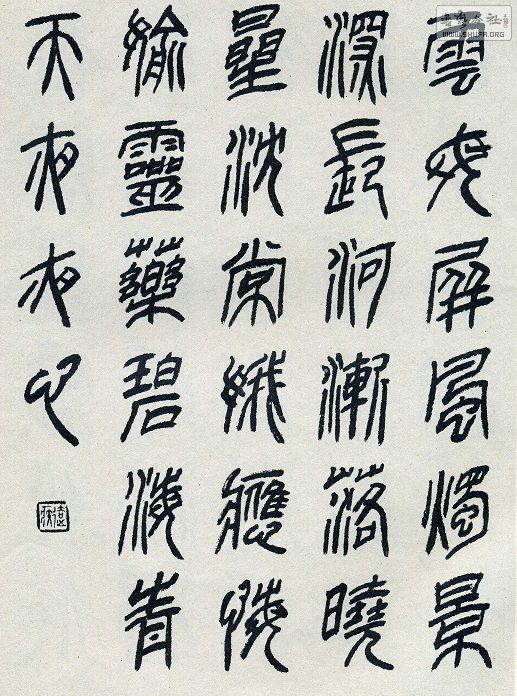 雲母屏風燭景
深長河漸落曉
星沈常娥應悔
媮靈藥碧海青
天夜夜心
WWW.SHUFA.ORG